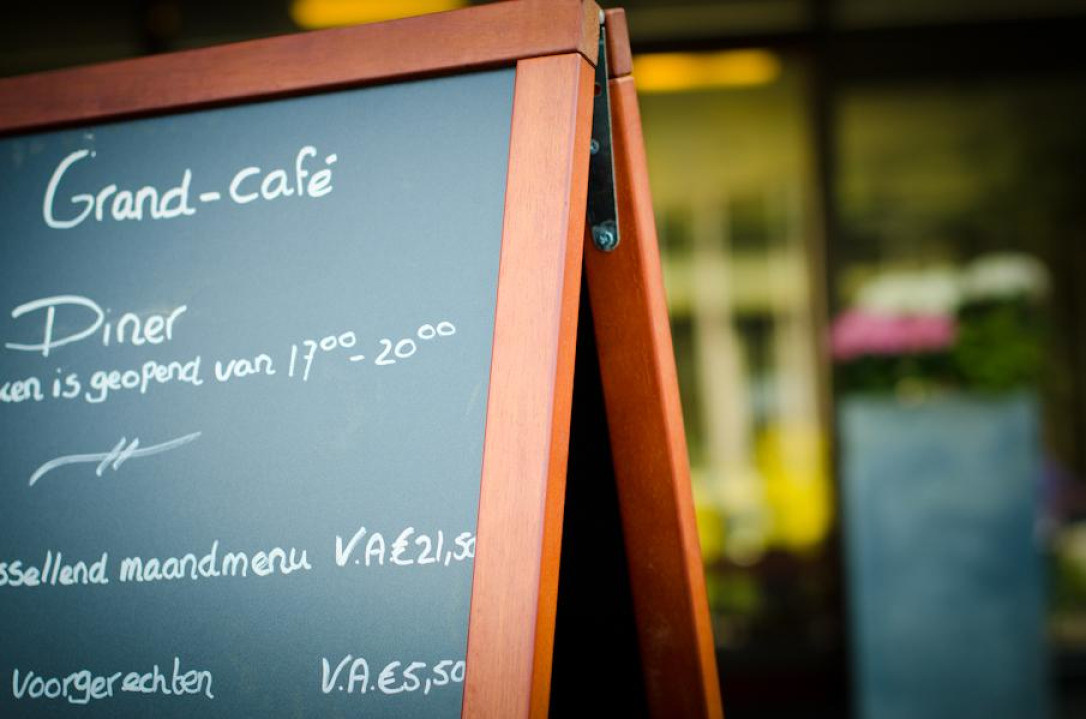 Grand-café
Diner
ken is geopend van 17⁰⁰-20⁰⁰
ssellend maandmenu V.A €21,50
voorgerechten V.A. €5,50